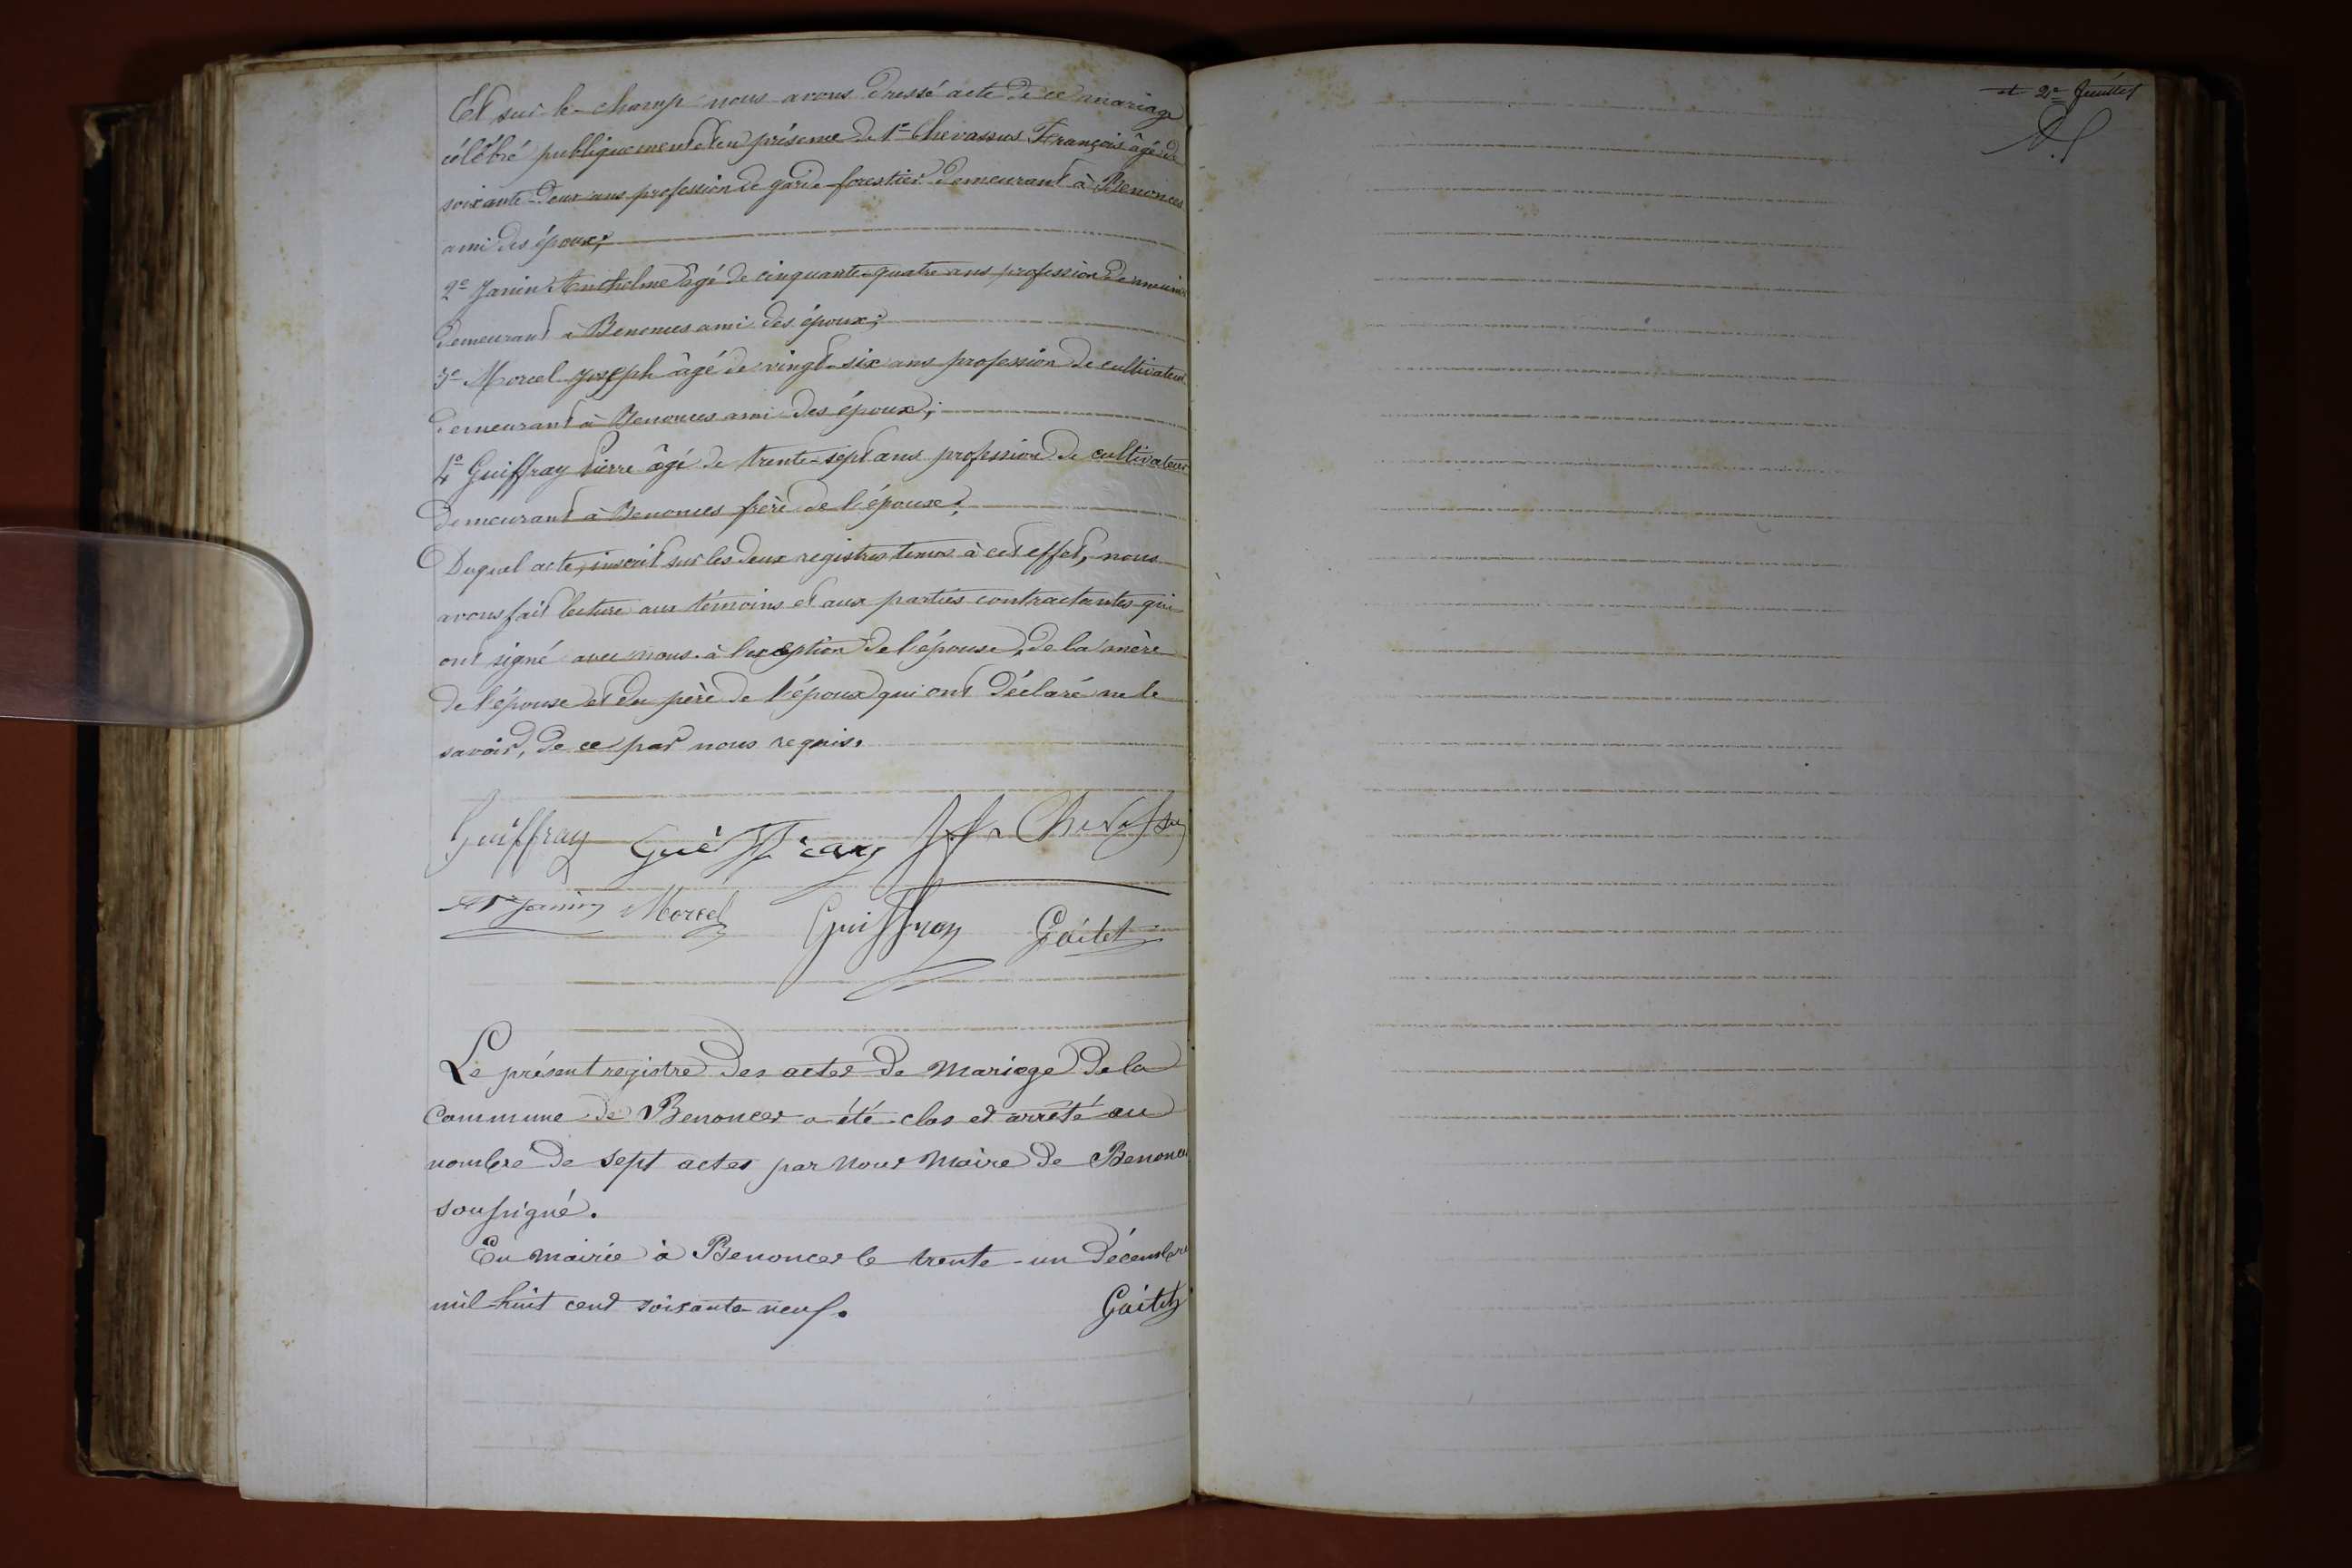 Et sur-le-champ nous avons dressé acte de ce mariage
célébré publiquement et en présence de 1° Chevassus François âgé de
soixante-deux ans profession de garde-forestier demeurant à Benonces
ami des époux;
2° Janin Anthelme âgé de cinquante-quatre ans profession de
demeurant à Benonces ami des époux;
3° Morcel Joseph âgé de vingt-six ans profession de cultivateur
demeurant à Benonces ami des époux;
4° Guiffray Pierre âgé de trente-sept ans profession de cultivateur
demeurant à Benonces frère de l'épouse;
Duquel acte, inscrit sur les deux registres tenus à cet effet, nous
avons fait lecture aux témoins et aux parties contractantes qui
ont signé avec nous à l'exception de l'épouse, de la mère
de l'épouse et du père de l'époux qui ont déclaré ne le
savoir, de ce par nous requis.
Guiffray Guiffray Chevassus
Janin Morcel Guiffray Gaitet
Le présent registre des actes de mariage de la
Commune de Benonces a été clos et arrêté au
nombre de sept actes par nous Maire de Benonces
soussigné.
En mairie à Benonces le trente-un décembre
mil-huit cent soixante-neuf. Gaitet
et 2e feuillet